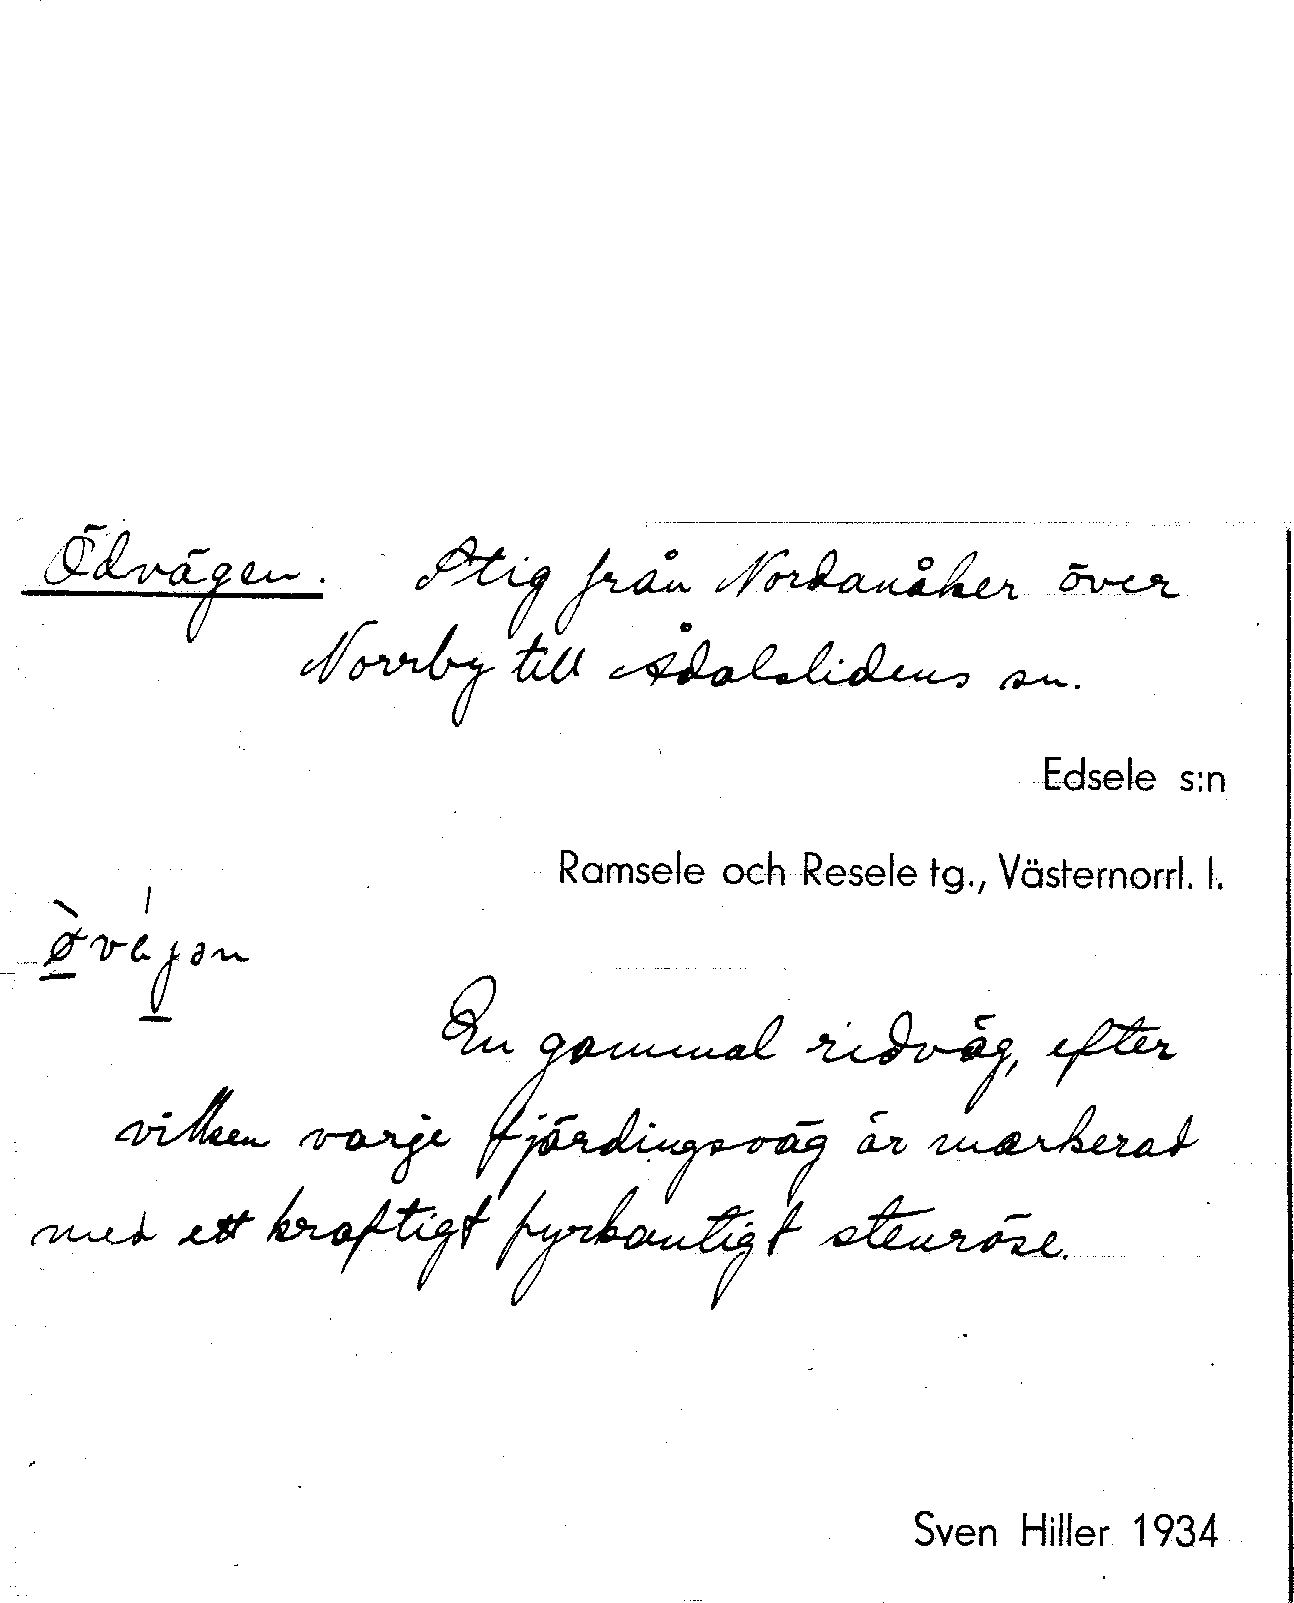 Ödvägen. Stig från Nordanåker över
Norrby till Ådalslidens sn.
Edsele s:n
Ramsele och Resele tg., Västernorrl. l.
En gammal ridväg, efter
vilken varje fjärdingsväg är markerad
med ett kraftigt fyrkantigt stenröse.
Sven Hiller 1934